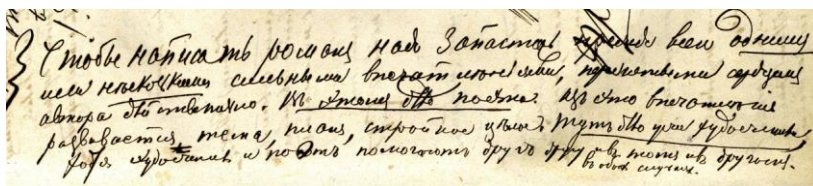 Чтобы написать романъ надо запастись прежде всего однимъ
или нѣсколькими сильными впечатлѣнiями, пережитыми сердцемъ
автора дѣйствительно. Въ этомъ дѣло поэта. Изъ этого впечатлѣнiя
развивается тема, планъ, стройное цѣлое. Тутъ дѣло уже художника,
хотя художникъ и поэтъ помогаютъ другъ другу и въ томъ и въ другомъ.
въ обоихъ случаяхъ.